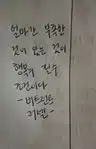 얼마간 부족한
것이 있는 것이
행복의 필수
조건이다
- 버트런드
러셀 -